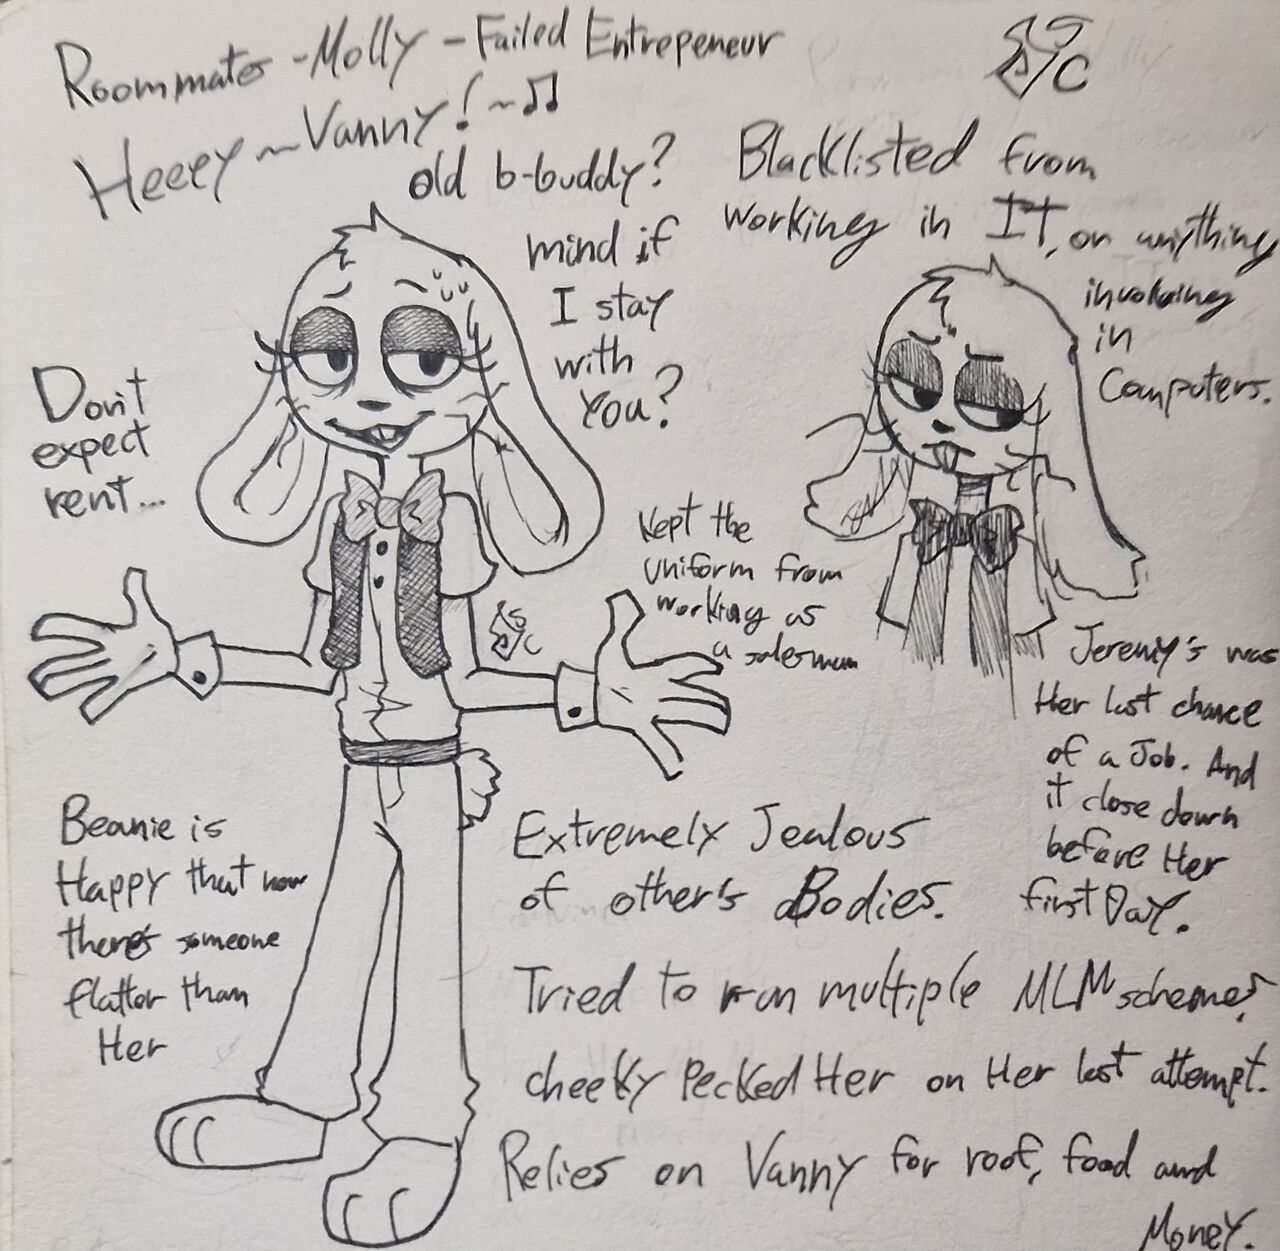 Roommate - Molly - Failed Entrepeneur
Heeey ~ Vanny! ~ ♫
old b-buddy?
mind if
I stay
with
You?
Don't
expect
rent...
Blacklisted from
working in IT, or anything
involving
in
Computers.
Kept the
uniform from
working as
a salesman
Jeremy's was
Her last chance
of a Job. And
it close down
before Her
first Day.
Beanie is
Happy that now
there's someone
flatter than
Her
Extremely Jealous
of other's Bodies.
Tried to run multiple MLM schemes,
cheeky pecked Her on Her last attempt.
Relies on Vanny for roof, food and
Money.